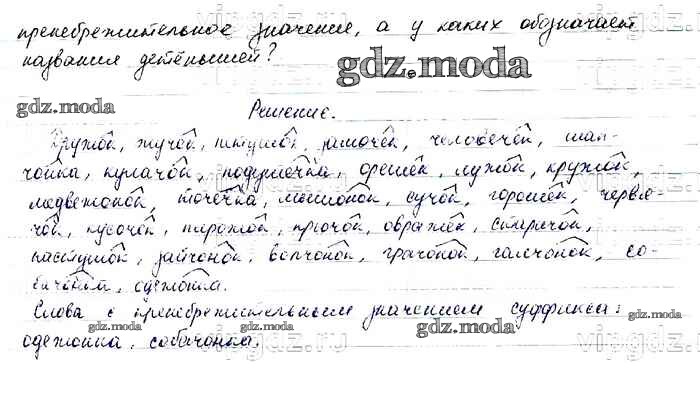 пренебрежительное значение, а у каких обозначает
названия детёнышей?
gdz.moda
gdz.moda
Решение.
Дружок, жучок, петушок, замочек, человечек, шап-
чонка, кулачок, подушечка, орешек, лужок, кружок,
медвежонок, точечка, мышонок, сучок, горошек, червя-
чок, кусочек, пирожок, крючок, овражек, старичок,
пастушок, зайчонок, волчонок, грачонок, галчонок, со-
бачонка, одежонка.
Слова с пренебрежительным значением суффикса:
одежонка, собачонка.
gdz.moda
gdz.moda
gdz.moda
vipgdz.ru
vipgdz.ru
vipgdz.ru